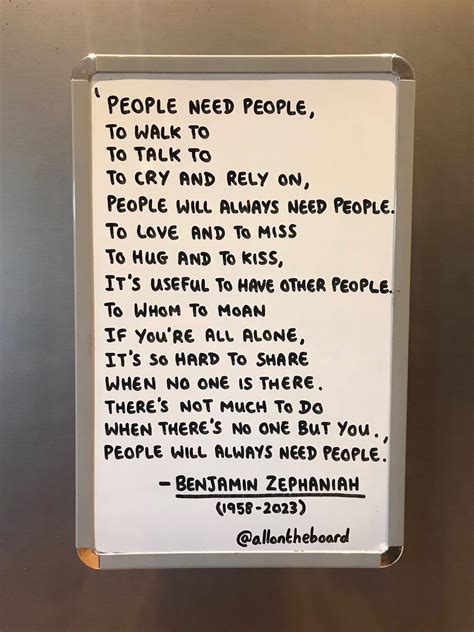 'PEOPLE NEED PEOPLE,
TO WALK TO
TO TALK TO
TO CRY AND RELY ON,
PEOPLE WILL ALWAYS NEED PEOPLE.
TO LOVE AND TO MISS
TO HUG AND TO KISS,
IT'S USEFUL TO HAVE OTHER PEOPLE.
TO WHOM TO MOAN
IF YOU'RE ALL ALONE,
IT'S SO HARD TO SHARE
WHEN NO ONE IS THERE.
THERE'S NOT MUCH TO DO
WHEN THERE'S NO ONE BUT YOU.,
PEOPLE WILL ALWAYS NEED PEOPLE.'
- BENJAMIN ZEPHANIAH
(1958-2023)
@allontheboard